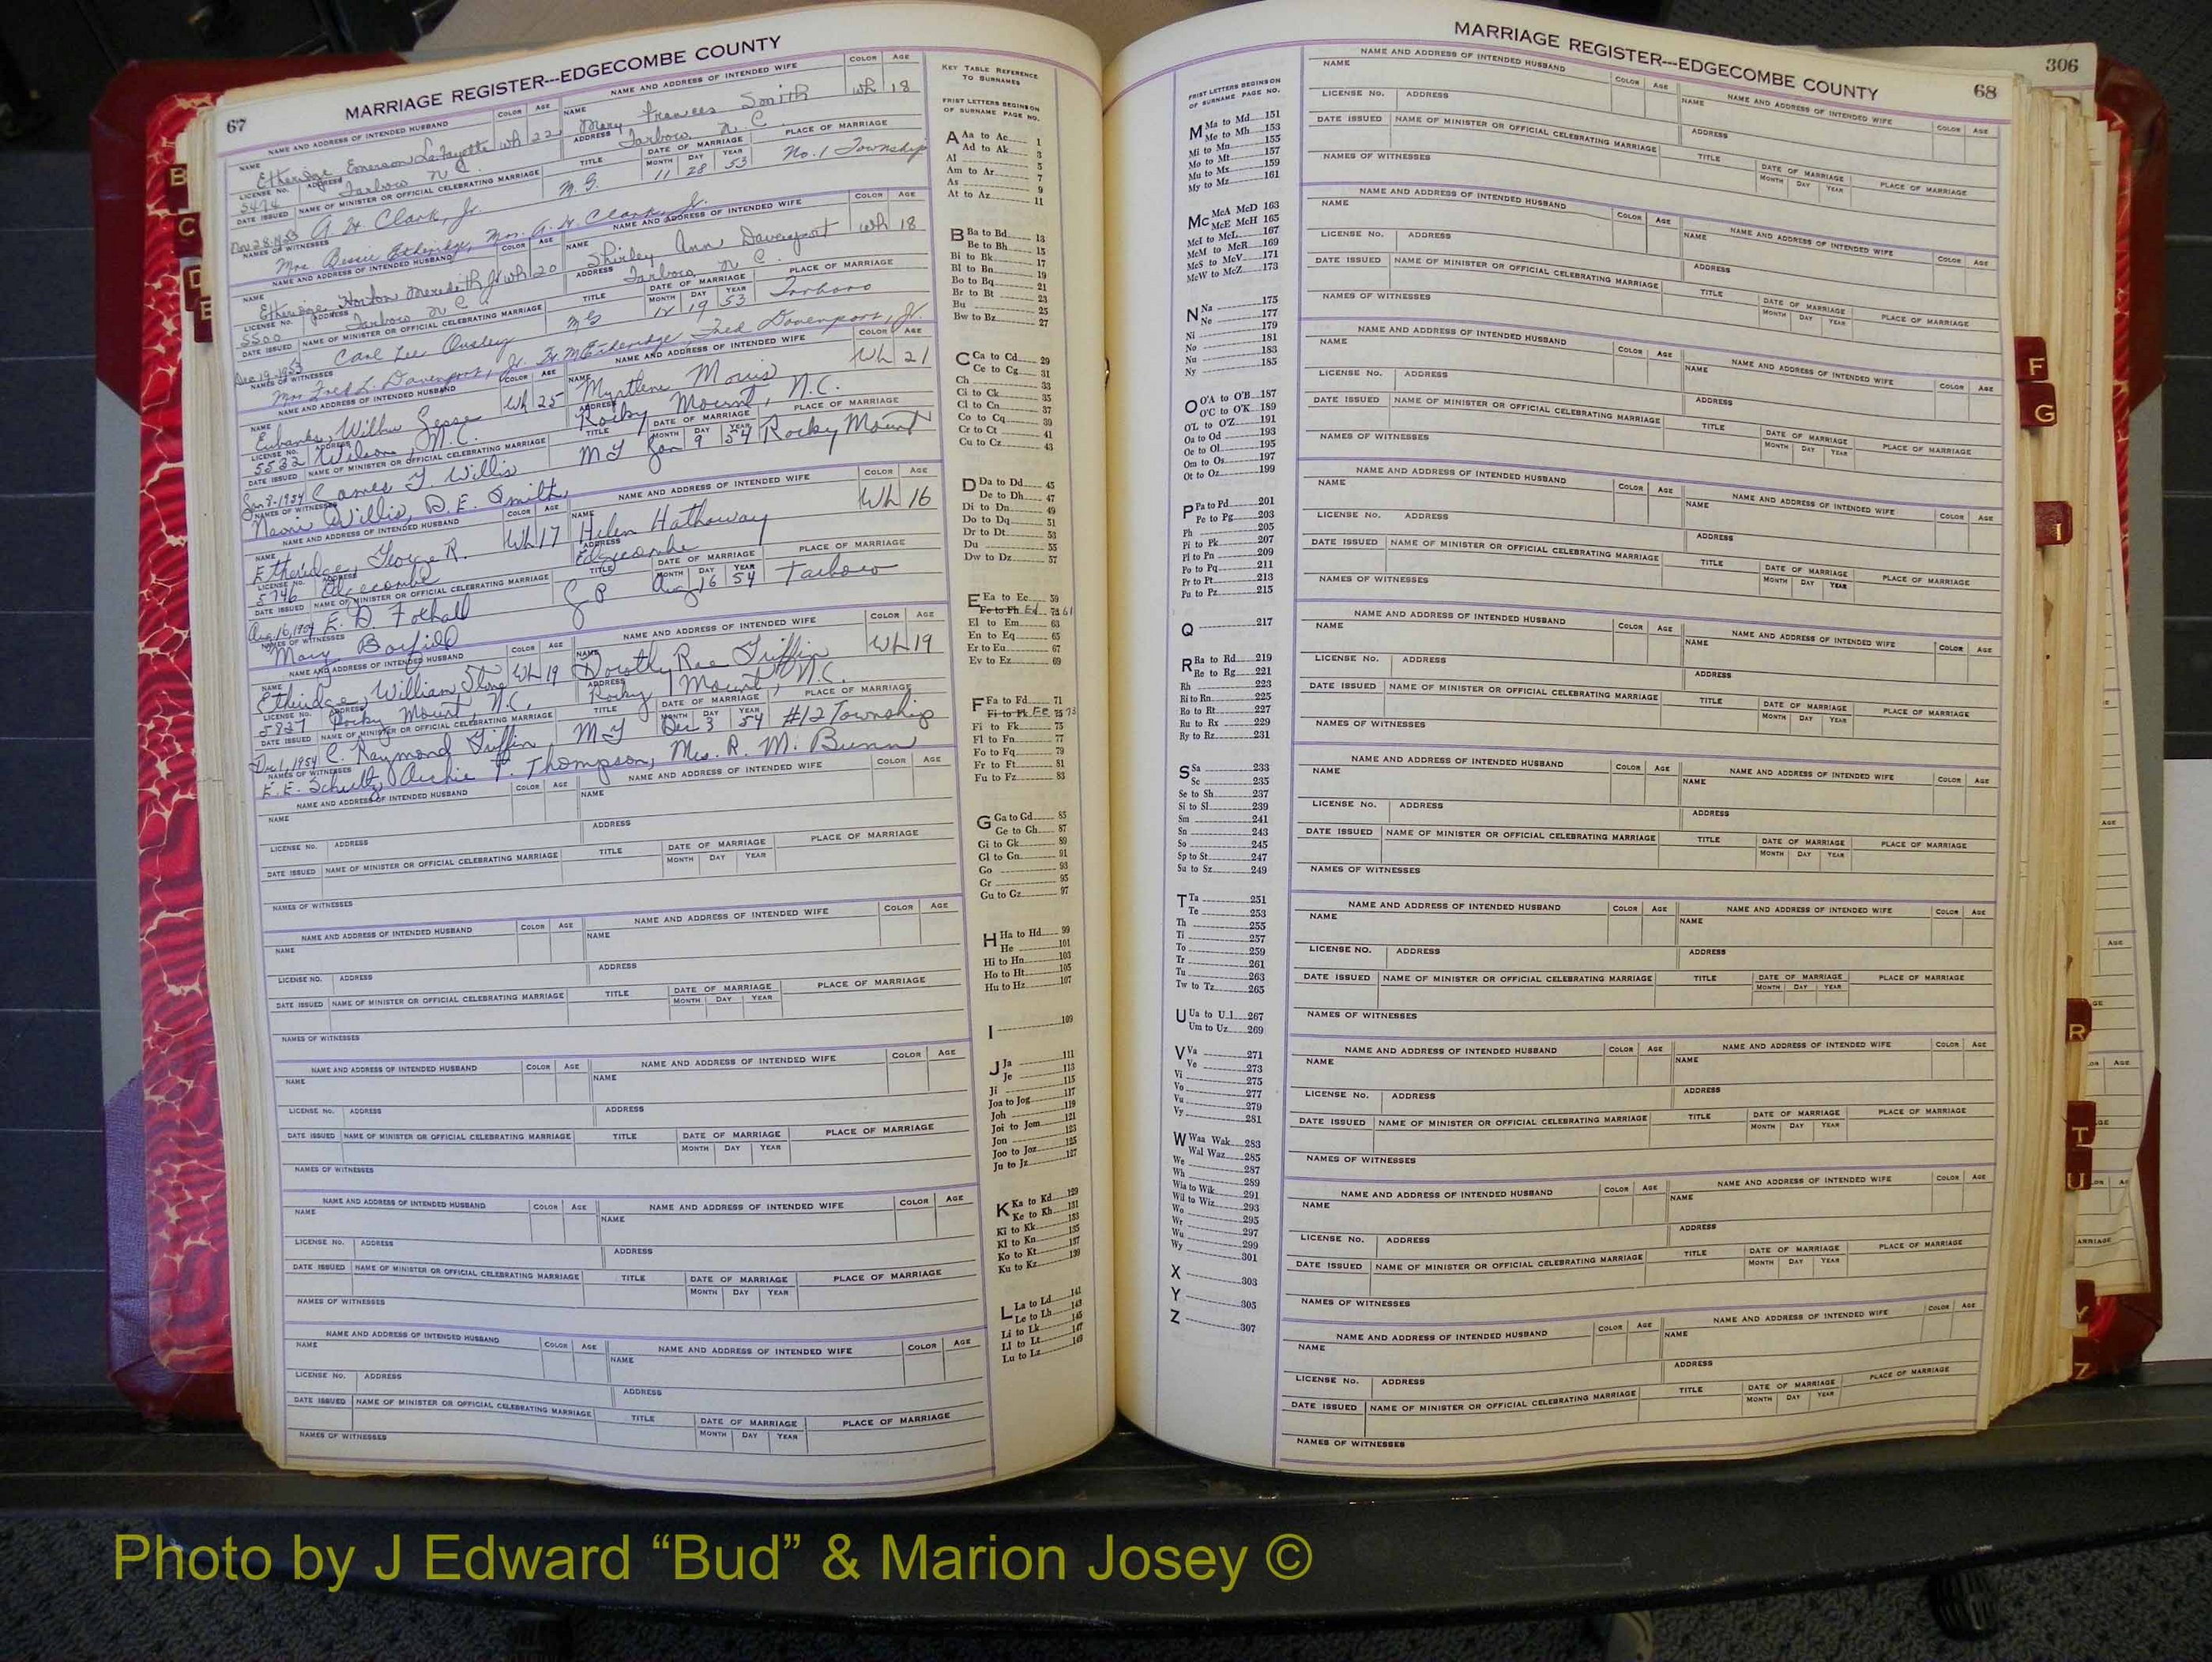 67
MARRIAGE REGISTER---EDGECOMBE COUNTY
NAME AND ADDRESS OF INTENDED HUSBAND COLOR AGE NAME AND ADDRESS OF INTENDED WIFE COLOR AGE
NAME Etheridge Emerson LaFayette Wh 22 NAME Mary Frances Smith Wh 18
LICENSE NO. 5474 ADDRESS Tarboro N C. ADDRESS Tarboro, N. C.
DATE ISSUED NAME OF MINISTER OR OFFICIAL CELEBRATING MARRIAGE TITLE DATE OF MARRIAGE MONTH DAY YEAR PLACE OF MARRIAGE
Nov 28-1953 A. H. Clark, Jr. M. G. 11 28 53 No. 1 Township
NAMES OF WITNESSES
Mrs. Bessie Etheridge, Mrs. A. H. Clark, Jr.
NAME AND ADDRESS OF INTENDED HUSBAND COLOR AGE NAME AND ADDRESS OF INTENDED WIFE COLOR AGE
NAME Etheridge, Horton Meredith Jr Wh 20 NAME Shirley Ann Davenport Wh 18
LICENSE NO. 5500 ADDRESS Tarboro N C ADDRESS Tarboro, N. C.
DATE ISSUED NAME OF MINISTER OR OFFICIAL CELEBRATING MARRIAGE TITLE DATE OF MARRIAGE MONTH DAY YEAR PLACE OF MARRIAGE
Dec 19-1953 Carl Lee Ousley MG 12 19 53 Tarboro
NAMES OF WITNESSES
Mrs Fred L. Davenport, Jr. H. M. Etheridge, Fred Davenport, Jr.
NAME AND ADDRESS OF INTENDED HUSBAND COLOR AGE NAME AND ADDRESS OF INTENDED WIFE COLOR AGE
NAME Eubanks, Wilbur Wh 25 NAME Myrtlene Morris Wh 21
LICENSE NO. 5532 ADDRESS Wilson, N.C. ADDRESS Rocky Mount, N.C.
DATE ISSUED NAME OF MINISTER OR OFFICIAL CELEBRATING MARRIAGE TITLE DATE OF MARRIAGE MONTH DAY YEAR PLACE OF MARRIAGE
Jan 8-1954 James Willis M G Jan 9 54 Rocky Mount
NAMES OF WITNESSES
Naomi Willis, D. E. Smith
NAME AND ADDRESS OF INTENDED HUSBAND COLOR AGE NAME AND ADDRESS OF INTENDED WIFE COLOR AGE
NAME Etheridge, George R. Wh 17 NAME Helen Hathaway Wh 16
LICENSE NO. 5746 ADDRESS Edgecombe ADDRESS Edgecombe
DATE ISSUED NAME OF MINISTER OR OFFICIAL CELEBRATING MARRIAGE TITLE DATE OF MARRIAGE MONTH DAY YEAR PLACE OF MARRIAGE
Aug. 16, 1954 E. D. Foxhall J P Aug 16 54 Tarboro
NAMES OF WITNESSES
Mary Barfield
NAME AND ADDRESS OF INTENDED HUSBAND COLOR AGE NAME AND ADDRESS OF INTENDED WIFE COLOR AGE
NAME Etheridge, William Wh 19 NAME Dorothy Rae Griffin Wh 19
LICENSE NO. 5837 ADDRESS Rocky Mount, N.C. ADDRESS Rocky Mount, N.C.
DATE ISSUED NAME OF MINISTER OR OFFICIAL CELEBRATING MARRIAGE TITLE DATE OF MARRIAGE MONTH DAY YEAR PLACE OF MARRIAGE
Dec 1, 1954 C. Raymond Griffin M G Dec 3 54 #12 Township
NAMES OF WITNESSES
E. E. Schultz, Archie F. Thompson, Mrs. R. M. Bunn
NAME AND ADDRESS OF INTENDED HUSBAND COLOR AGE NAME AND ADDRESS OF INTENDED WIFE COLOR AGE
NAME NAME
LICENSE NO. ADDRESS ADDRESS
DATE ISSUED NAME OF MINISTER OR OFFICIAL CELEBRATING MARRIAGE TITLE DATE OF MARRIAGE MONTH DAY YEAR PLACE OF MARRIAGE
NAMES OF WITNESSES
KEY TABLE REFERENCE
TO SURNAMES
FRIST LETTERS BEGINS ON
OF SURNAME PAGE NO.
A Aa to Ac 1
Ad to Ak 3
Al 5
Am to Ar 7
As 9
At to Az 11
B Ba to Bd 13
Be to Bh 15
Bi to Bk 17
Bl to Bn 19
Bo to Bq 21
Br to Bt 23
Bu 25
Bw to Bz 27
C Ca to Cd 29
Ce to Cg 31
Ch 33
Ci to Ck 35
Cl to Cn 37
Co to Cq 39
Cr to Ct 41
Cu to Cz 43
D Da to Dd 45
De to Dh 47
Di to Dn 49
Do to Dq 51
Dr to Dt 53
Du 55
Dw to Dz 57
E Ea to Ec 59
Fe to Fh Ed 73 61
El to Em 63
En to Eq 65
Er to Eu 67
Ev to Ez 69
F Fa to Fd 71
Fi to Fk Fe 75 73
Fi to Fk 75
Fl to Fn 77
Fo to Fq 79
Fr to Ft 81
Fu to Fz 83
G Ga to Gd 85
Ge to Gh 87
Gi to Gk 89
Gl to Gn 91
Go 93
Gr 95
Gu to Gz 97
H Ha to Hd 99
He 101
Hi to Hn 103
Ho to Ht 105
Hu to Hz 107
I 109
J Ja 111
Je 113
Ji 115
Joa to Jog 117
Joh 119
Joi to Jom 121
Jon 123
Joo to Joz 125
Ju to Jz 127
K Ka to Kd 129
Ke to Kh 131
Ki to Kk 133
Kl to Kn 135
Ko to Kt 137
Ku to Kz 139
L La to Ld 141
Le to Lh 143
Li to Lk 145
Ll to Lt 147
Lu to Lz 149
MARRIAGE REGISTER---EDGECOMBE COUNTY
68
306
FRIST LETTERS BEGINS ON
OF SURNAME PAGE NO.
M Ma to Md 151
Me to Mh 153
Mi to Mn 155
Mo to Mt 157
Mu to Mx 159
My to Mz 161
Mc McA McD 163
McE McH 165
McI to McL 167
McM to McR 169
McS to McV 171
McW to McZ 173
N Na 175
Ne 177
Ni 179
No 181
Nu 183
Ny 185
O O'A to O'B 187
O'C to O'K 189
O'L to O'Z 191
Oa to Od 193
Oe to Ol 195
Om to Os 197
Ot to Oz 199
P Pa to Pd 201
Pe to Pg 203
Ph 205
Pi to Pk 207
Pl to Pn 209
Po to Pq 211
Pr to Pt 213
Pu to Pz 215
Q 217
R Ra to Rd 219
Re to Rg 221
Rh 223
Ri to Rn 225
Ro to Rt 227
Ru to Rx 229
Ry to Rz 231
S Sa 233
Sc 235
Se to Sh 237
Si to Sl 239
Sm 241
Sn 243
So 245
Sp to St 247
Su to Sz 249
T Ta 251
Te 253
Th 255
Ti 257
To 259
Tr 261
Tu 263
Tw to Tz 265
U Ua to U_l 267
Um to Uz 269
V Va 271
Ve 273
Vi 275
Vo 277
Vu 279
Vy 281
W Waa Wak 283
Wal Waz 285
We 287
Wh 289
Wia to Wik 291
Wil to Wiz 293
Wo 295
Wr 297
Wu 299
Wy 301
X 303
Y 305
Z 307
NAME AND ADDRESS OF INTENDED HUSBAND COLOR AGE NAME AND ADDRESS OF INTENDED WIFE COLOR AGE
NAME NAME
LICENSE NO. ADDRESS ADDRESS
DATE ISSUED NAME OF MINISTER OR OFFICIAL CELEBRATING MARRIAGE TITLE DATE OF MARRIAGE MONTH DAY YEAR PLACE OF MARRIAGE
NAMES OF WITNESSES
B
C
D
E
F
G
I
R
T
U
Y
Z
Photo by J Edward “Bud” & Marion Josey ©